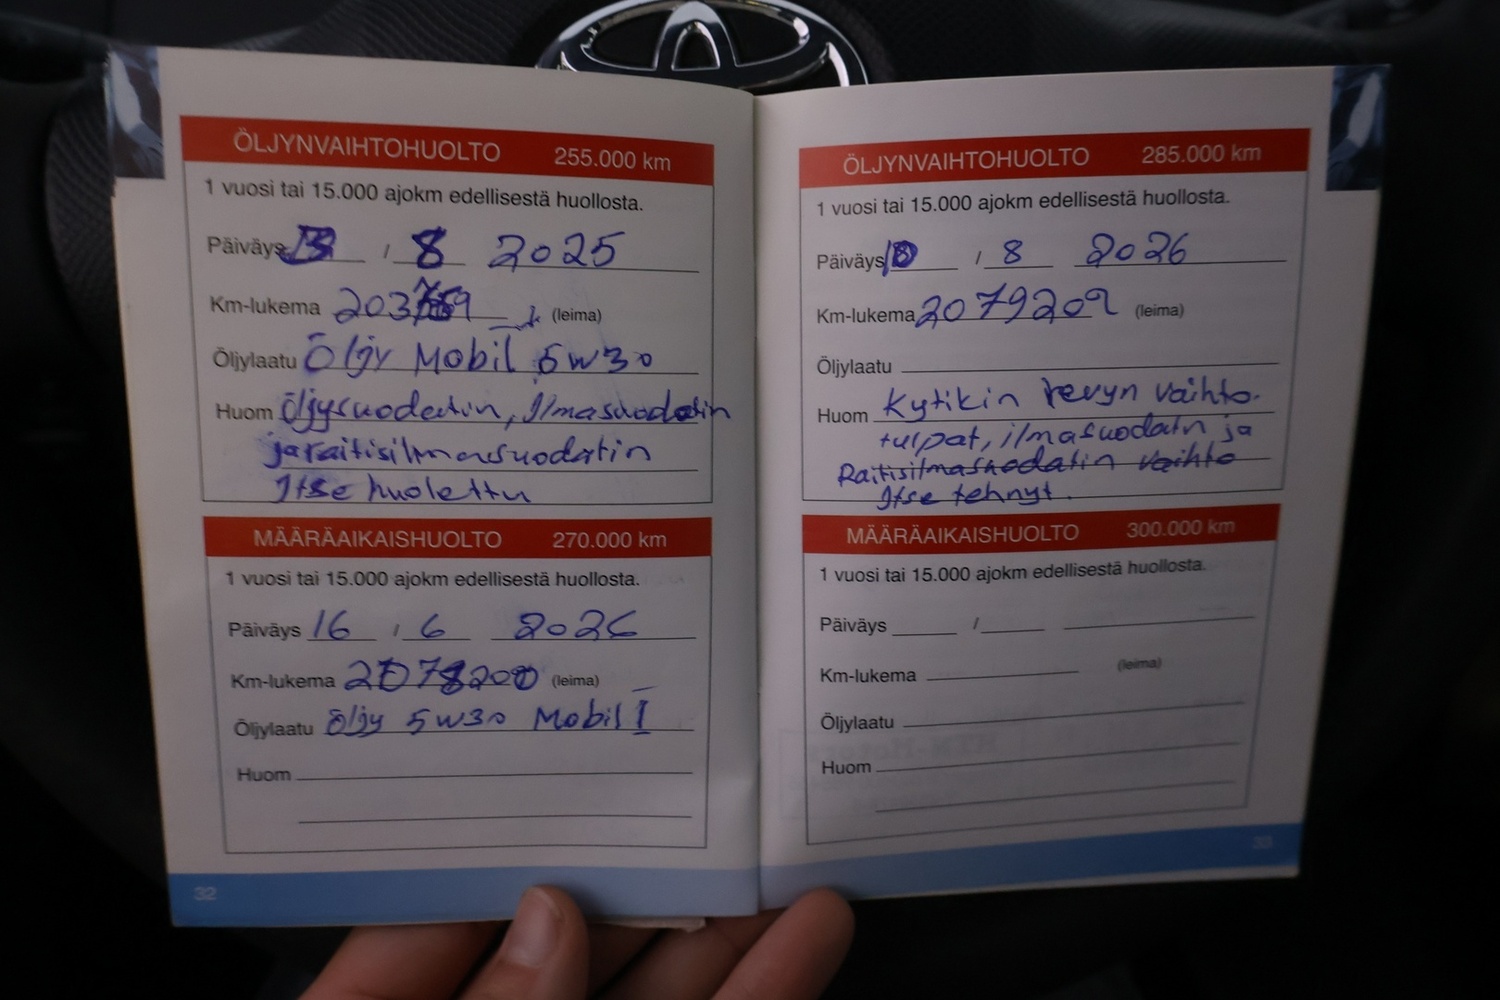 ÖLJYNVAIHTOHUOLTO 255.000 km
1 vuosi tai 15.000 ajokm edellisestä huollosta.
Päiväys / 8 2025
Km-lukema (leima)
Öljylaatu Öljy Mobil 5w30
Huom Öljysuodatin, Ilmasuodatin
ja raitisilmasuodatin
Itse huolettu
MÄÄRÄAIKAISHUOLTO 270.000 km
1 vuosi tai 15.000 ajokm edellisestä huollosta.
Päiväys 16 / 6 2026
Km-lukema (leima)
Öljylaatu öljy 5w30 Mobil I
Huom
32
ÖLJYNVAIHTOHUOLTO 285.000 km
1 vuosi tai 15.000 ajokm edellisestä huollosta.
Päiväys / 8 2026
Km-lukema 2079209 (leima)
Öljylaatu
Huom Kytikin revyn vaihto.
tulpat, ilmasuodatn ja
Raitisilmasuodatin vaihto
Itse tehnyt.
MÄÄRÄAIKAISHUOLTO 300.000 km
1 vuosi tai 15.000 ajokm edellisestä huollosta.
Päiväys /
Km-lukema (leima)
Öljylaatu
Huom
33